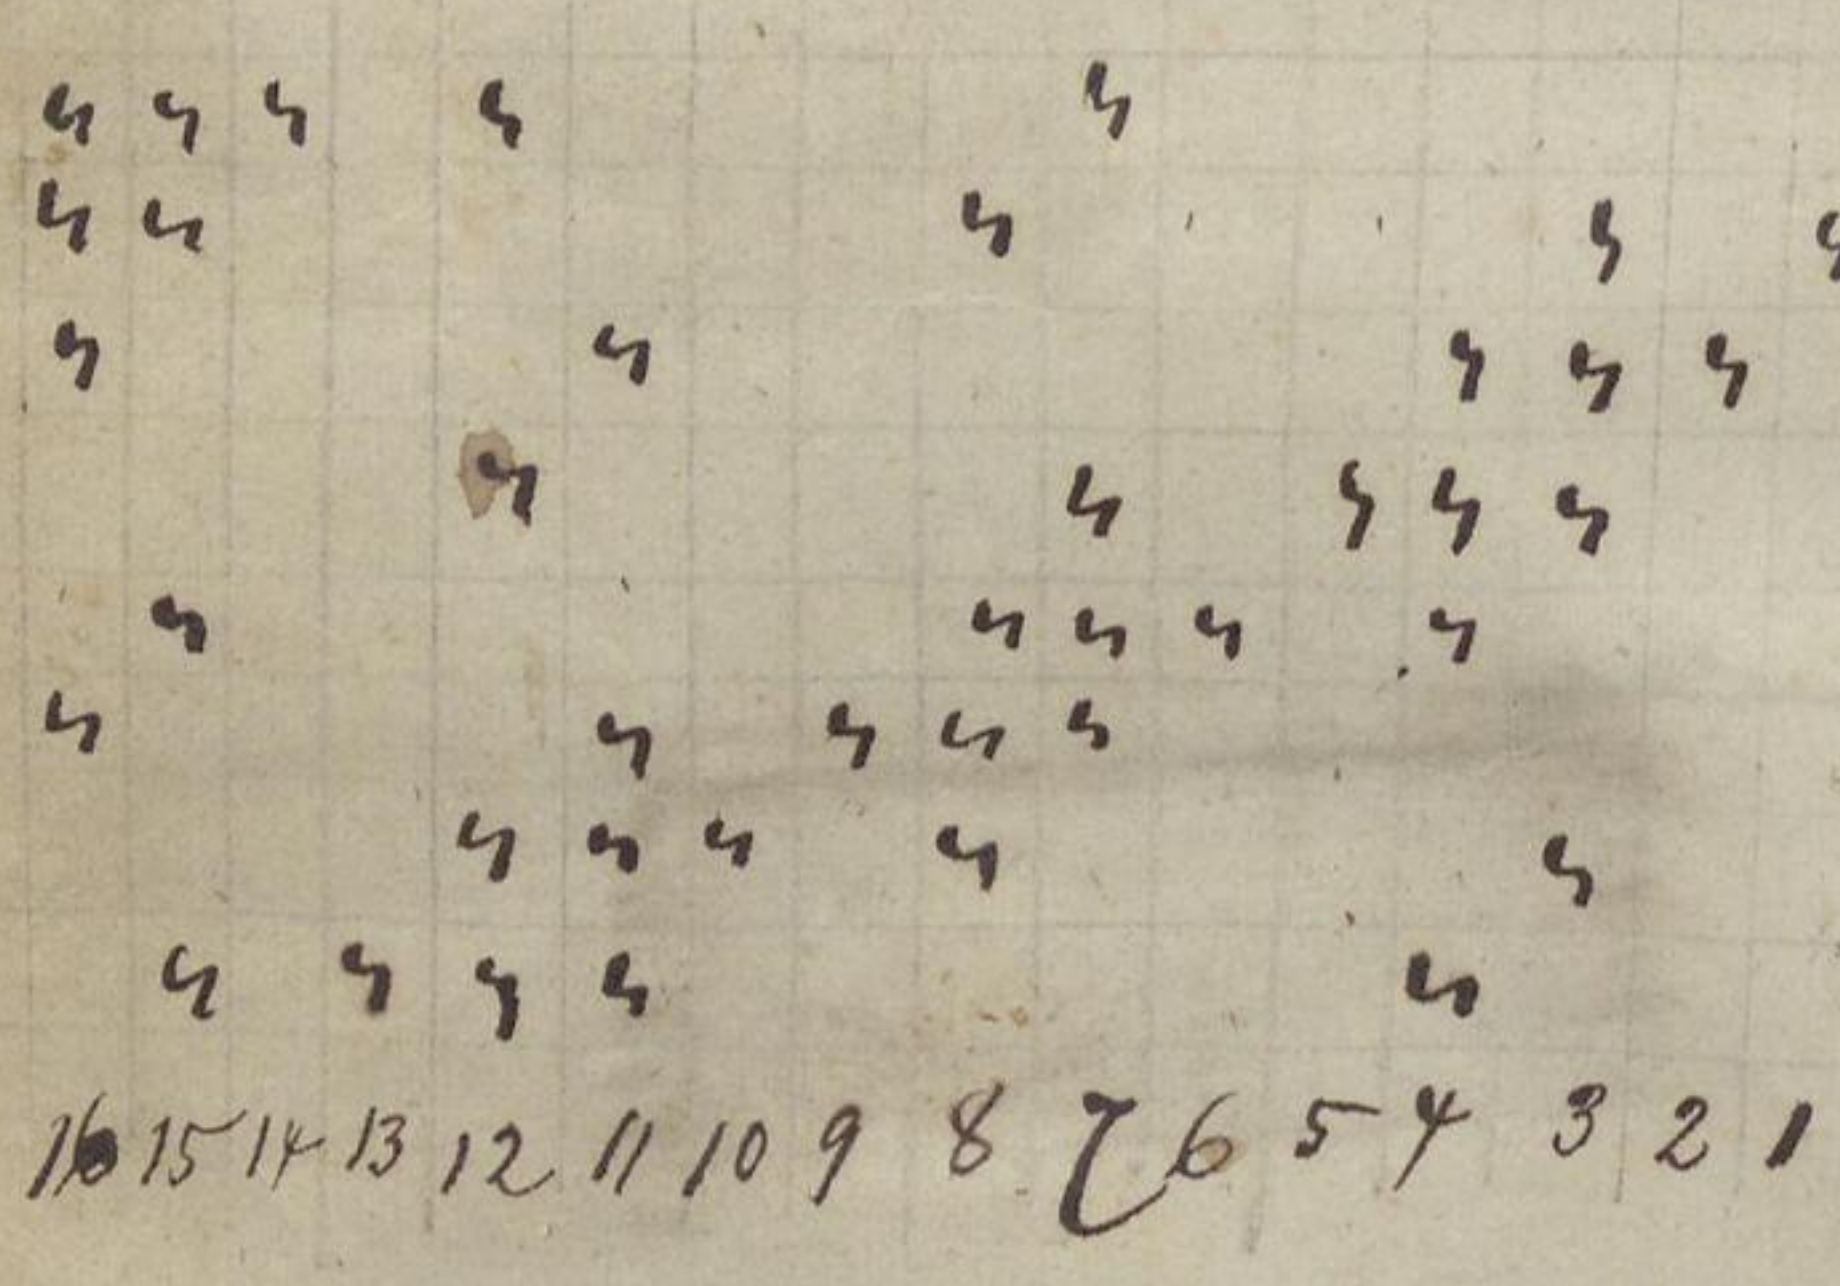 16 15 14 13 12 11 10 9 8 7 6 5 4 3 2 1